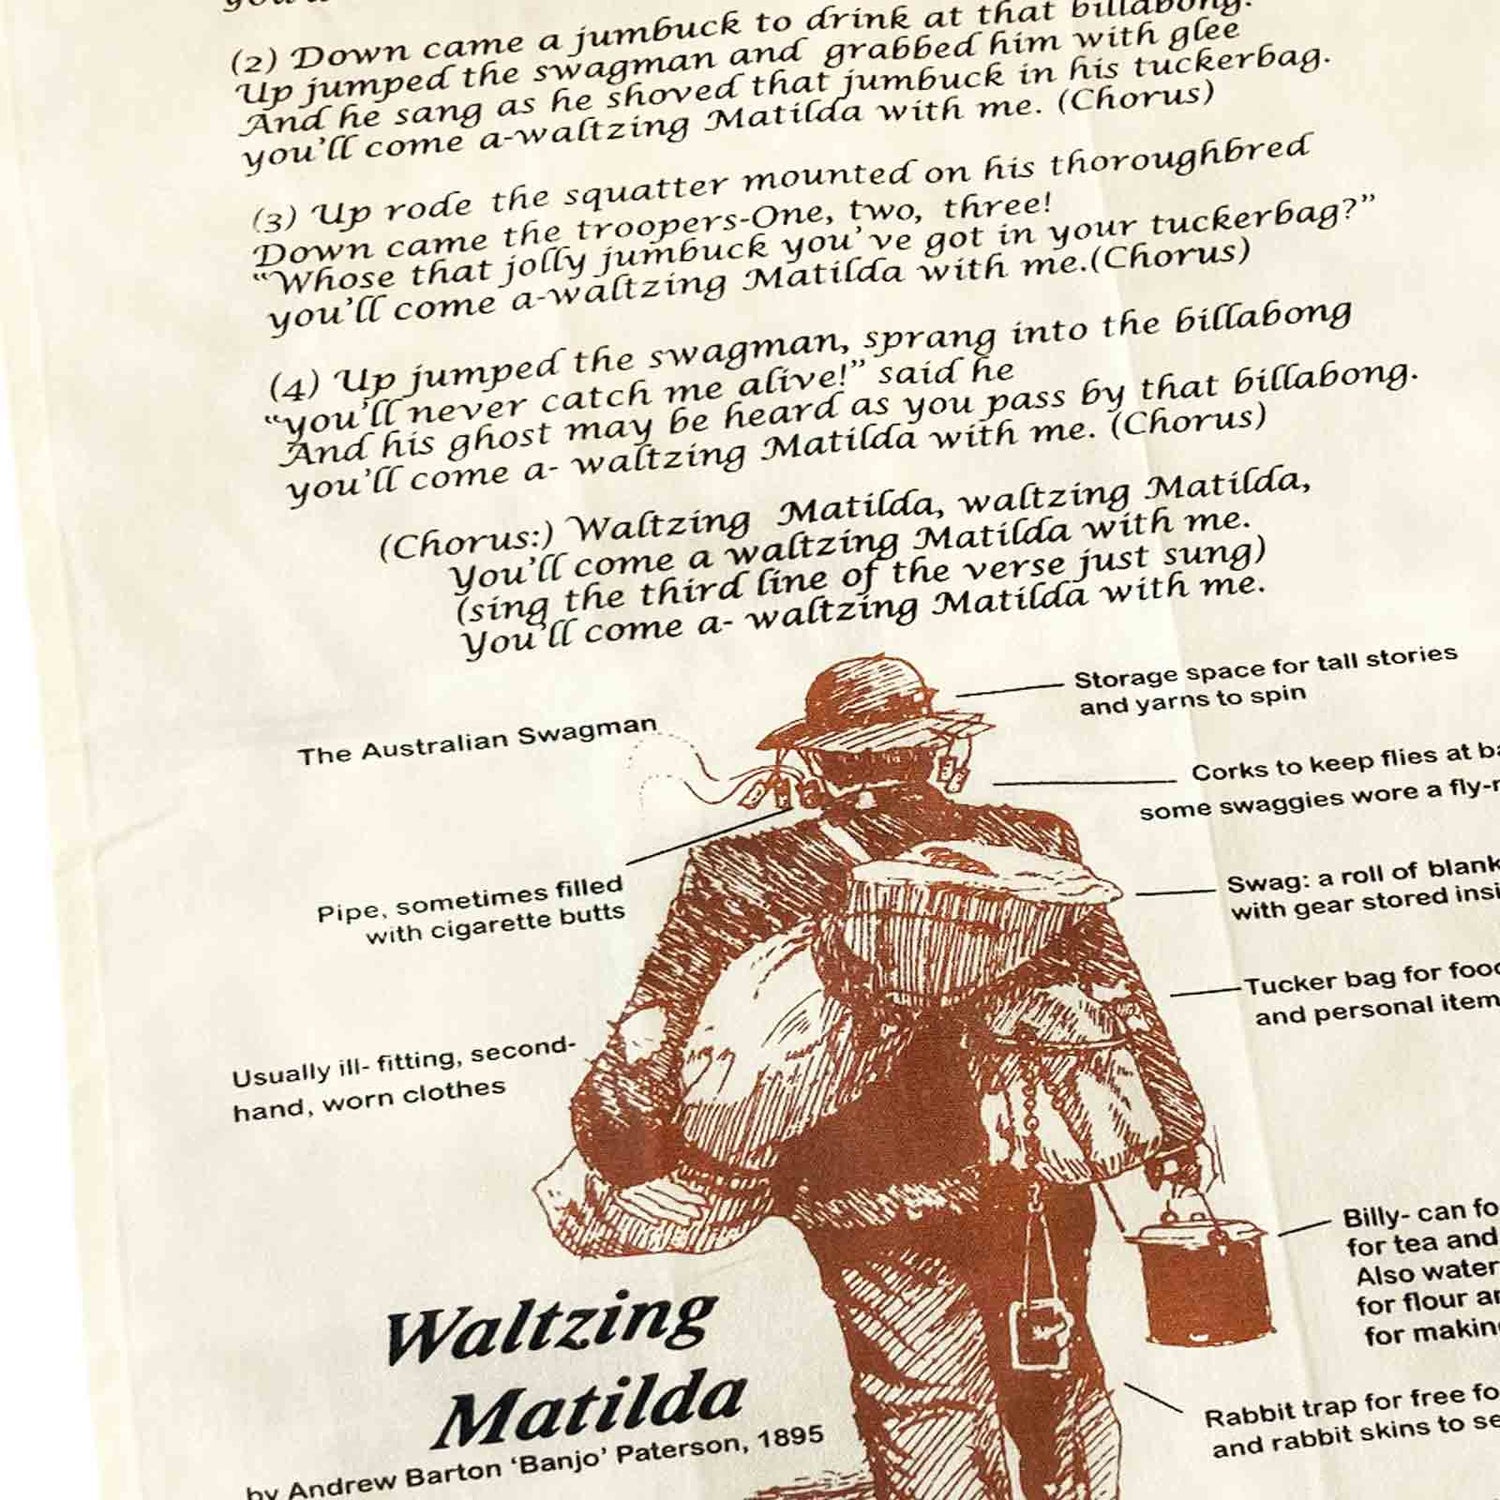 (2) Down came a jumbuck to drink at that billabong.
Up jumped the swagman and grabbed him with glee
And he sang as he shoved that jumbuck in his tuckerbag.
you'll come a-waltzing Matilda with me. (Chorus)
(3) Up rode the squatter mounted on his thoroughbred
Down came the troopers-One, two, three!
“Whose that jolly jumbuck you've got in your tuckerbag?”
you'll come a-waltzing Matilda with me.(Chorus)
(4) Up jumped the swagman, sprang into the billabong
“you'll never catch me alive!” said he
And his ghost may be heard as you pass by that billabong.
you'll come a- waltzing Matilda with me. (Chorus)
(Chorus:) Waltzing Matilda, waltzing Matilda,
You'll come a waltzing Matilda with me.
(sing the third line of the verse just sung)
You'll come a- waltzing Matilda with me.
Storage space for tall stories
and yarns to spin
The Australian Swagman
Corks to keep flies at
some swaggies wore a
Pipe, sometimes filled
with cigarette butts
Swag: a roll of
with gear stored
Tucker bag for
and personal
Usually ill- fitting, second-
hand, worn clothes
Billy- can
for tea and
Also water
for flour
for
Rabbit trap for free
and rabbit skins to
Waltzing
Matilda
by Andrew Barton ‘Banjo’ Paterson, 1895